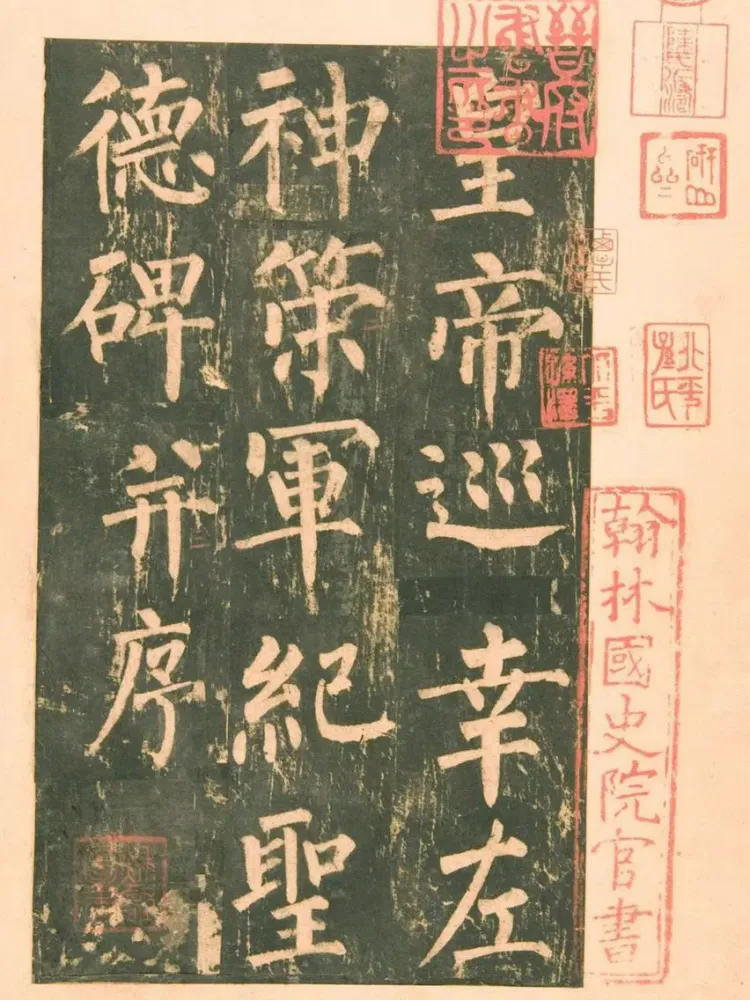 皇帝巡幸左
神策軍紀聖
德碑并序
翰林國史院官書
北平孫氏